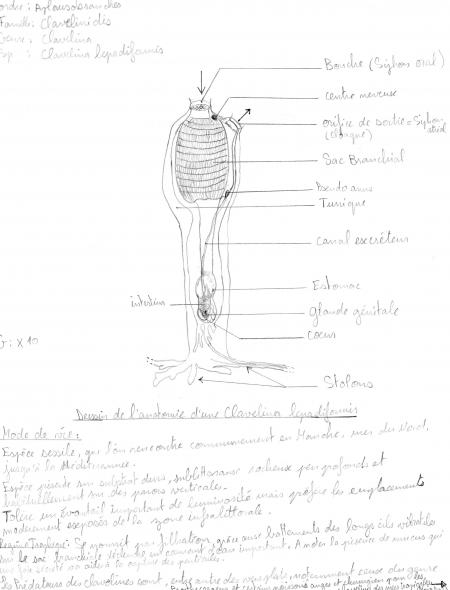 ordre : Aplousobranches
Famille : Clavelinidés
Genre : Clavelina
Esp : Clavelina lepadiformis
Bouche (Siphon oral)
centre nerveux
orifice de sortie = Siphon atrial
(cloaque)
Sac Branchial
Pseudo anus
Tunique
canal excréteur
Estomac
intestin
glande génitale
coeur
G : x 10
Stolons
Dessin de l'anatomie d'une Clavelina lepadiformis
Mode de vie :
Espèce sessile, que l'on rencontre communément en Manche, mer du Nord,
jusqu'à la Méditerranée.
Espèce présente sur substrat durs, sublittoraux rocheux peu profonds et
habituellement sur des parois verticales.
Tolère un éventail important de luminosité mais préfère les emplacements
modérément exposés de la zone infralittorale.
Régime Trophique : Se nourrit par filtration, grâce aux battements des longs cils vibratiles
sur le sac branchial
un courant d'eau important. A noter la présence de mucus qui
une fois secrété va aider à la capture des particules.
Les Prédateurs des clavelines sont, entre autre des notamment ceux du genre
et certains poissons anges et